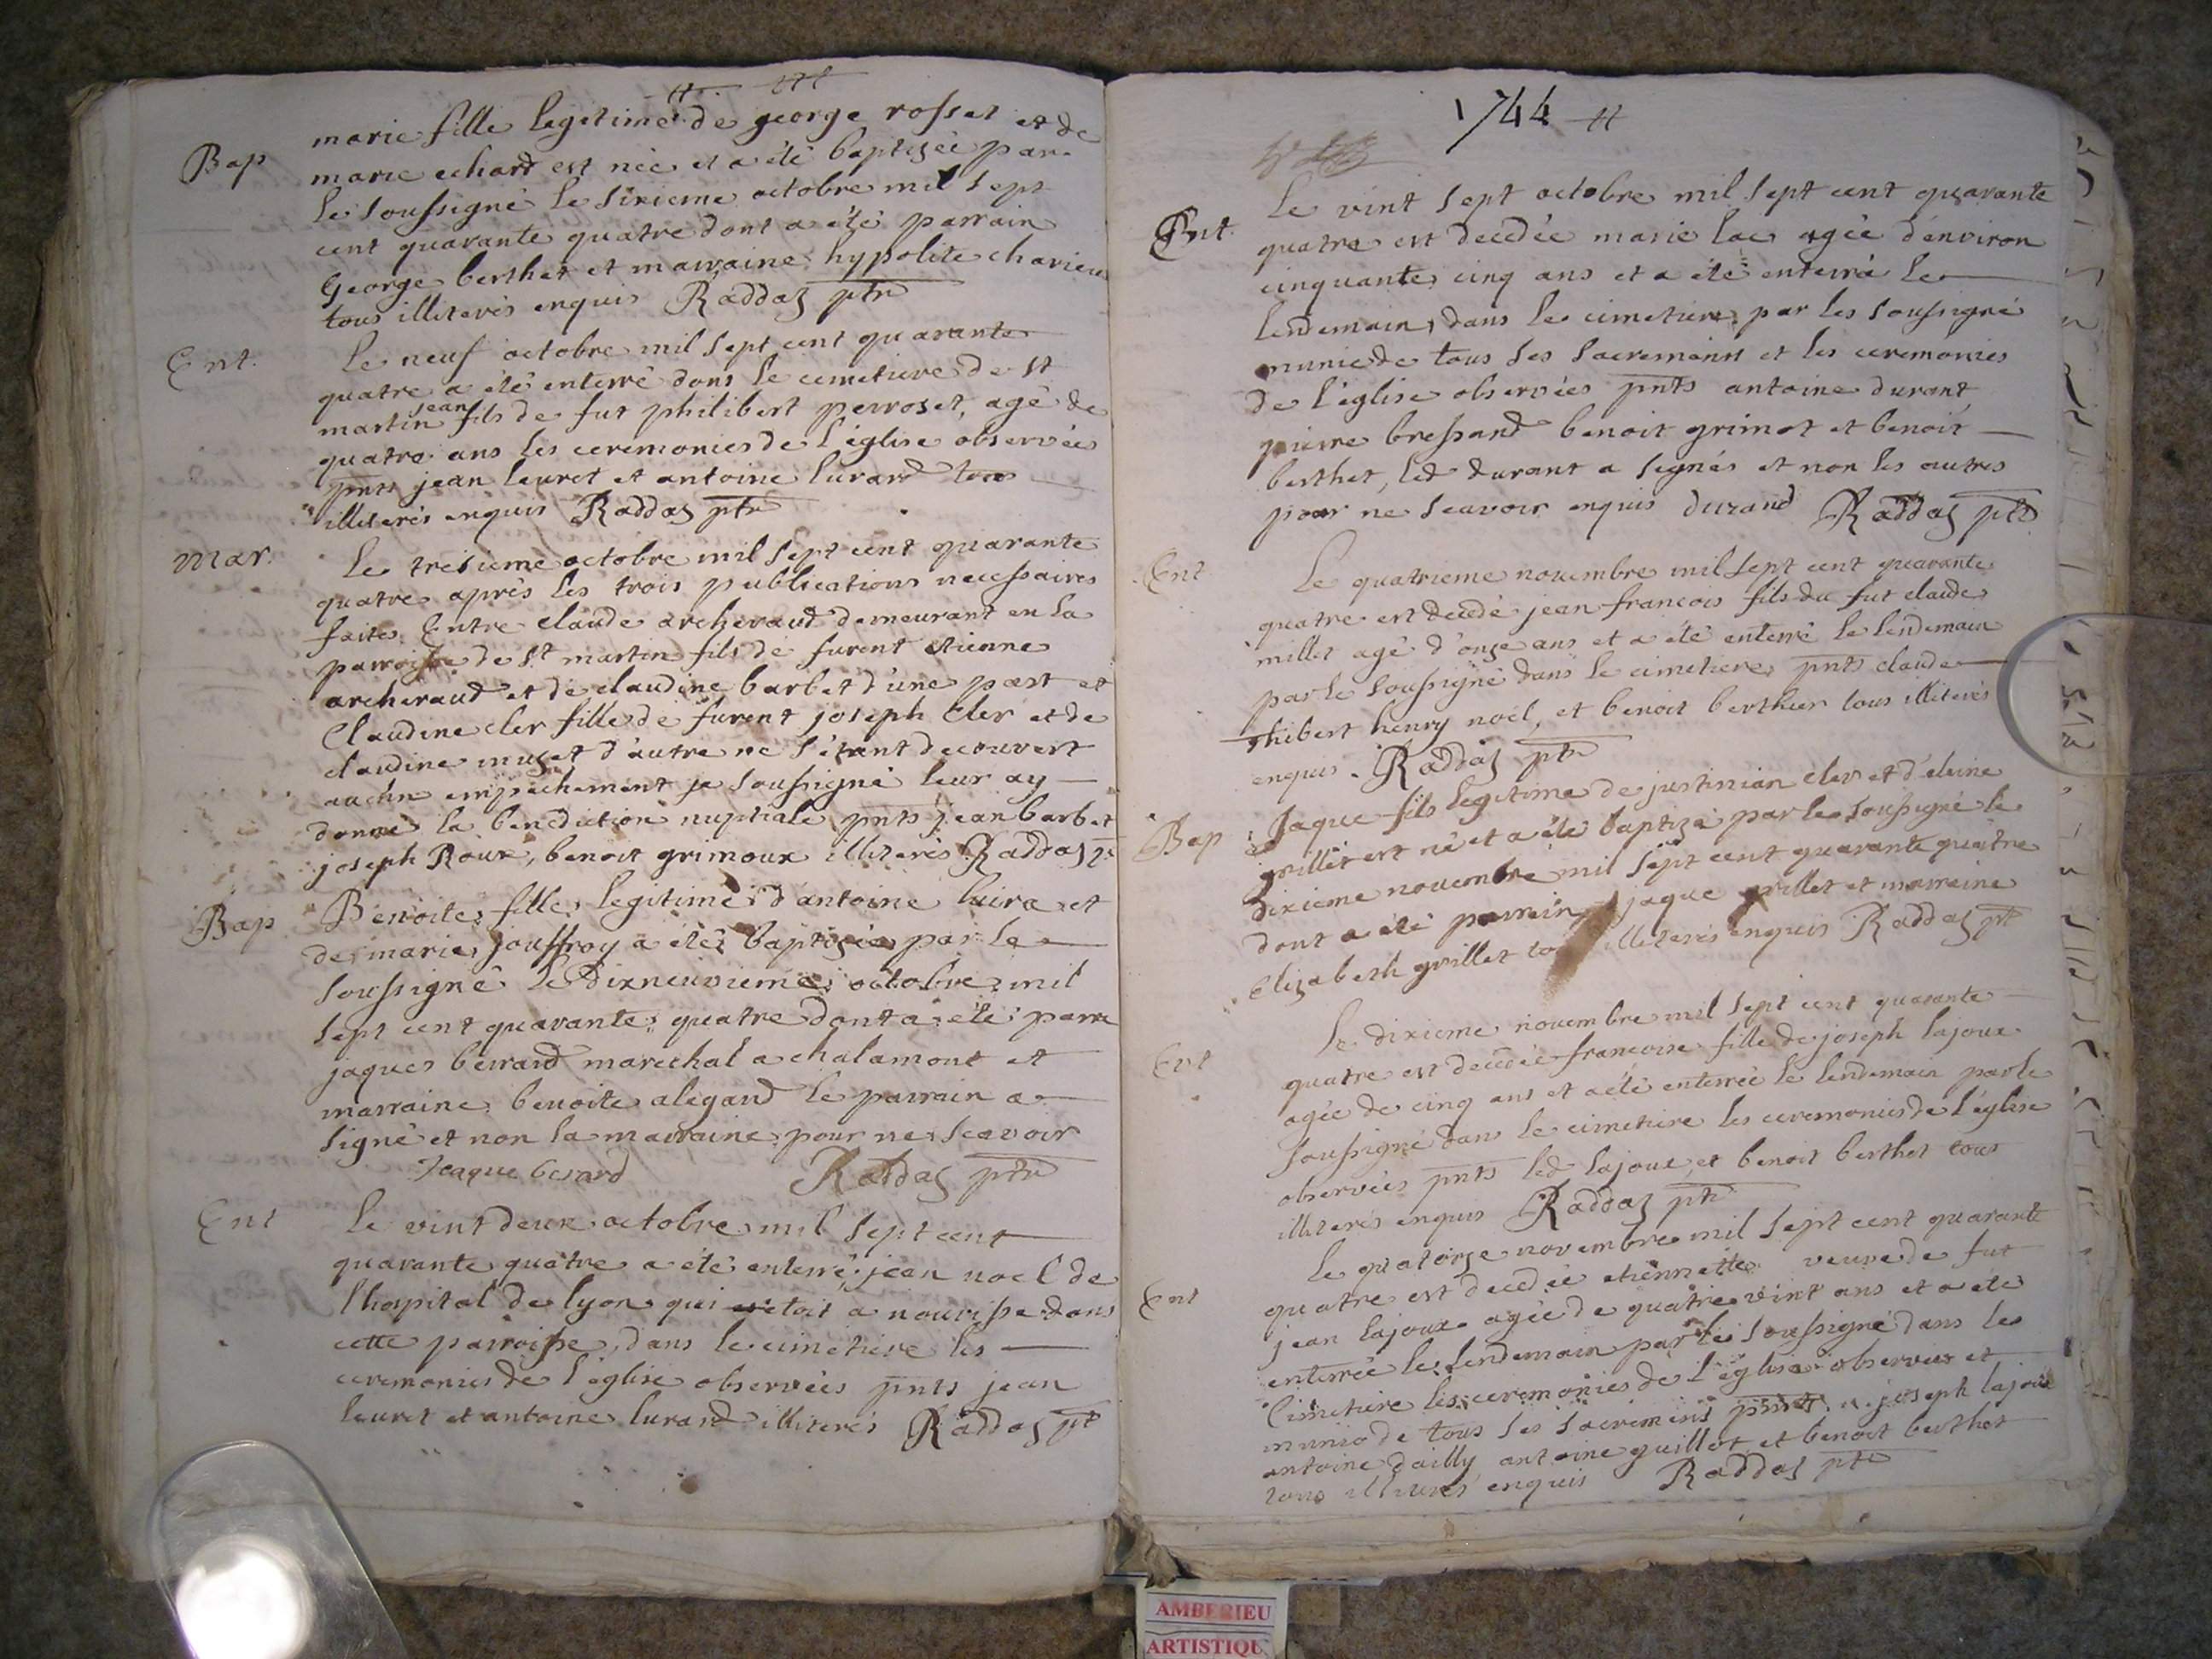 Bap
marie fille legitime de george rosset et de
marie echard est née et a été baptisée par
le soussigné le sixieme octobre mil sept
cent quarante quatre dont a été parrain
George berthet et marraine hypolite charieu
tous illiterés enquis Raddaz ptr
Ent.
Le neuf octobre mil sept cent quarante
quatre a été enterré dans le cemetiere de st
martin jean fils de fut philibert perroset, agé de
quatre ans les ceremonies de l'église observées
pnts jean leuret et antoine lurard tous
illiterés enquis Raddaz ptr
Mar.
Le tresieme octobre mil sept cent quarante
quatre après les trois publications necessaires
faites Entre claude archeraud demeurant en la
parroisse de st martin fils de furent etienne
archeraud et de claudine barbet d'une part et
Claudine cler fille de furent joseph Cler et de
claudine muzet d'autre ne s'étant decouvert
aucun empechement je soussigné leur ay
donné la benediction nuptiale pnts jean barbet
joseph Roux, benoit grimoux illiterés Raddaz
Bap
Benoite fille legitime d'antoine luira et
de marie jouffroy a été baptisée par le
soussigné le dixneuvieme octobre mil
sept cent quarante quatre dont a été parra
jaques berrard marechal a chalamont et
marraine benoite alegand le parrain a
signé et non la marraine pour ne scavoir
Jeaque berard Raddaz ptr
Ent
Le vint deux octobre mil sept cent
quarante quatre a été enterré jean noel de
l'hospital de lyon qui etoit a nourisse dans
cette parroisse, dans le cimetiere les
ceremonies de l'église observées pnts jean
leuret et antoine lurard illiterés Raddaz pt
1744
Ent.
Le vint sept octobre mil sept cent quarante
quatre est decedée marie lac agée d'environ
cinquante cinq ans et a été enterré le
lendemain dans le cimetiere par les soussigné
munie de tous ses sacremens et les ceremonies
de l'église observées pnts antoine durant
pierre bressand benoit grimot et benoit
berthet, led durant a signés et non les autres
pour ne scavoir enquis durand Raddaz ptr
Ent
Le quatrieme nouembre mil sept cent quarante
quatre est decedé jean francois fils du fut claude
millet agé d'onze ans et a été enterré le lendemain
par le soussigné dans le cimetiere pnts claude
thibert henry noël, et benoit berthier tous illiterés
enquis Raddaz ptr
Bap
Jaque fils legitime de justinian cler et d'eluine
grillet est né et a été baptizé par le soussigné le
dixieme nouembre mil sept cent quarante quatre
dont a été parrain jaque grillet et marraine
Elizabeth grillet illiterés enquis Raddaz pt
Ent
Le dixieme nouembre mil sept cent quarante
quatre est decedée francoise fille de joseph lajoux
agée de cinq ans et a été enterrée le lendemain par le
soussigné dans le cimetiere les ceremonies de l'église
observées pnts led lajoux et benoit berthet tous
illiterés enquis Raddaz ptr
Ent
Le quatorze novembre mil sept cent quarante
quatre est decedée etiennette veuve de fut
jean lajoux agée de quatre vint ans et a été
enterrée le lendemain par le soussigné dans le
Cimetiere les ceremonies de l'église observées et
munie de tous ses sacremens pnts joseph lajoux
antoine dailly antoine guillot et benoit berthet
tous illiterés enquis Raddaz ptr
AMBERIEU
ARTISTIQU